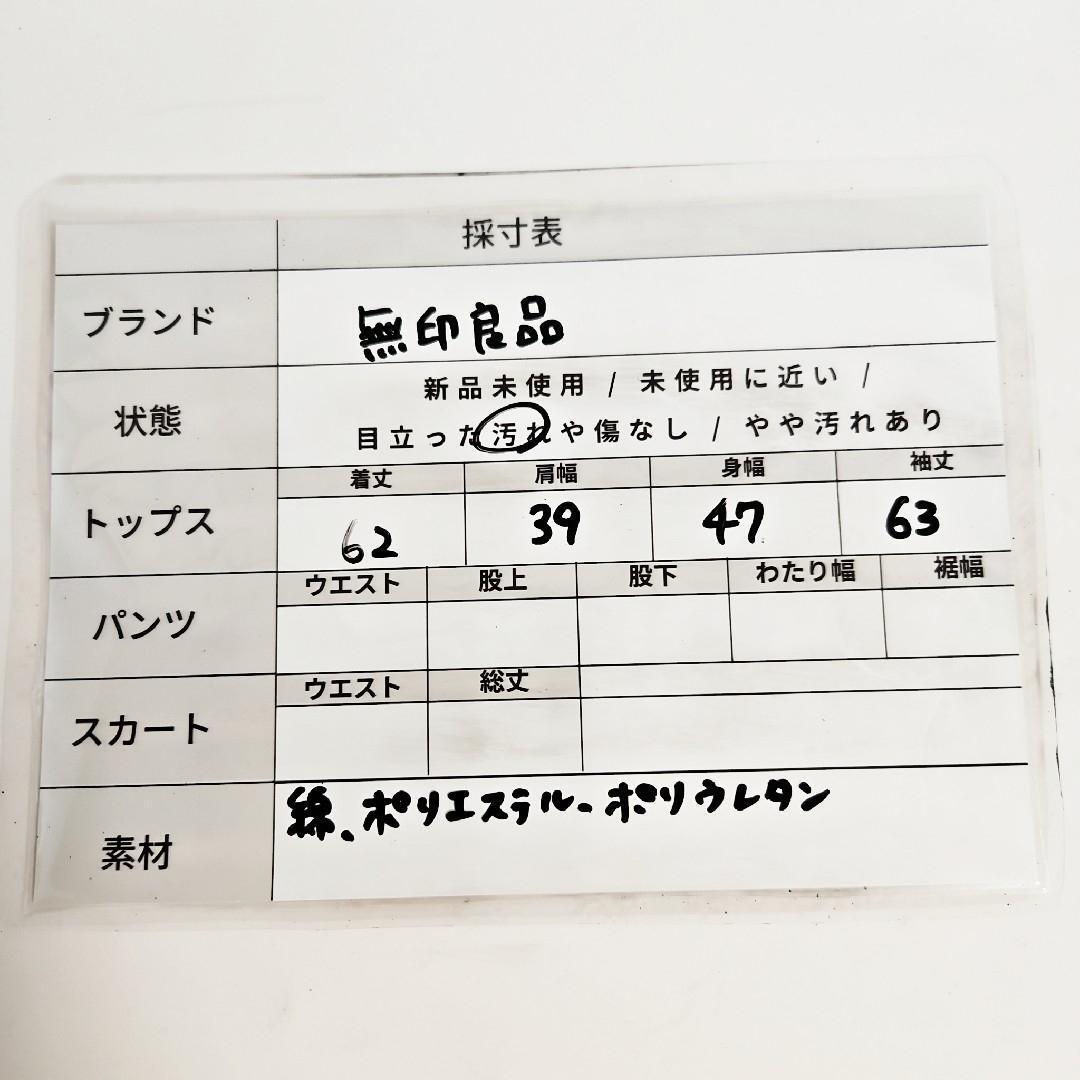 採寸表
ブランド 無印良品
新品未使用 / 未使用に近い /
状態
目立った汚れや傷なし / やや汚れあり
着丈 肩幅 身幅 袖丈
トップス 62 39 47 63
ウエスト 股上 股下 わたり幅 裾幅
パンツ
ウエスト 総丈
スカート
綿、ポリエステル、ポリウレタン
素材